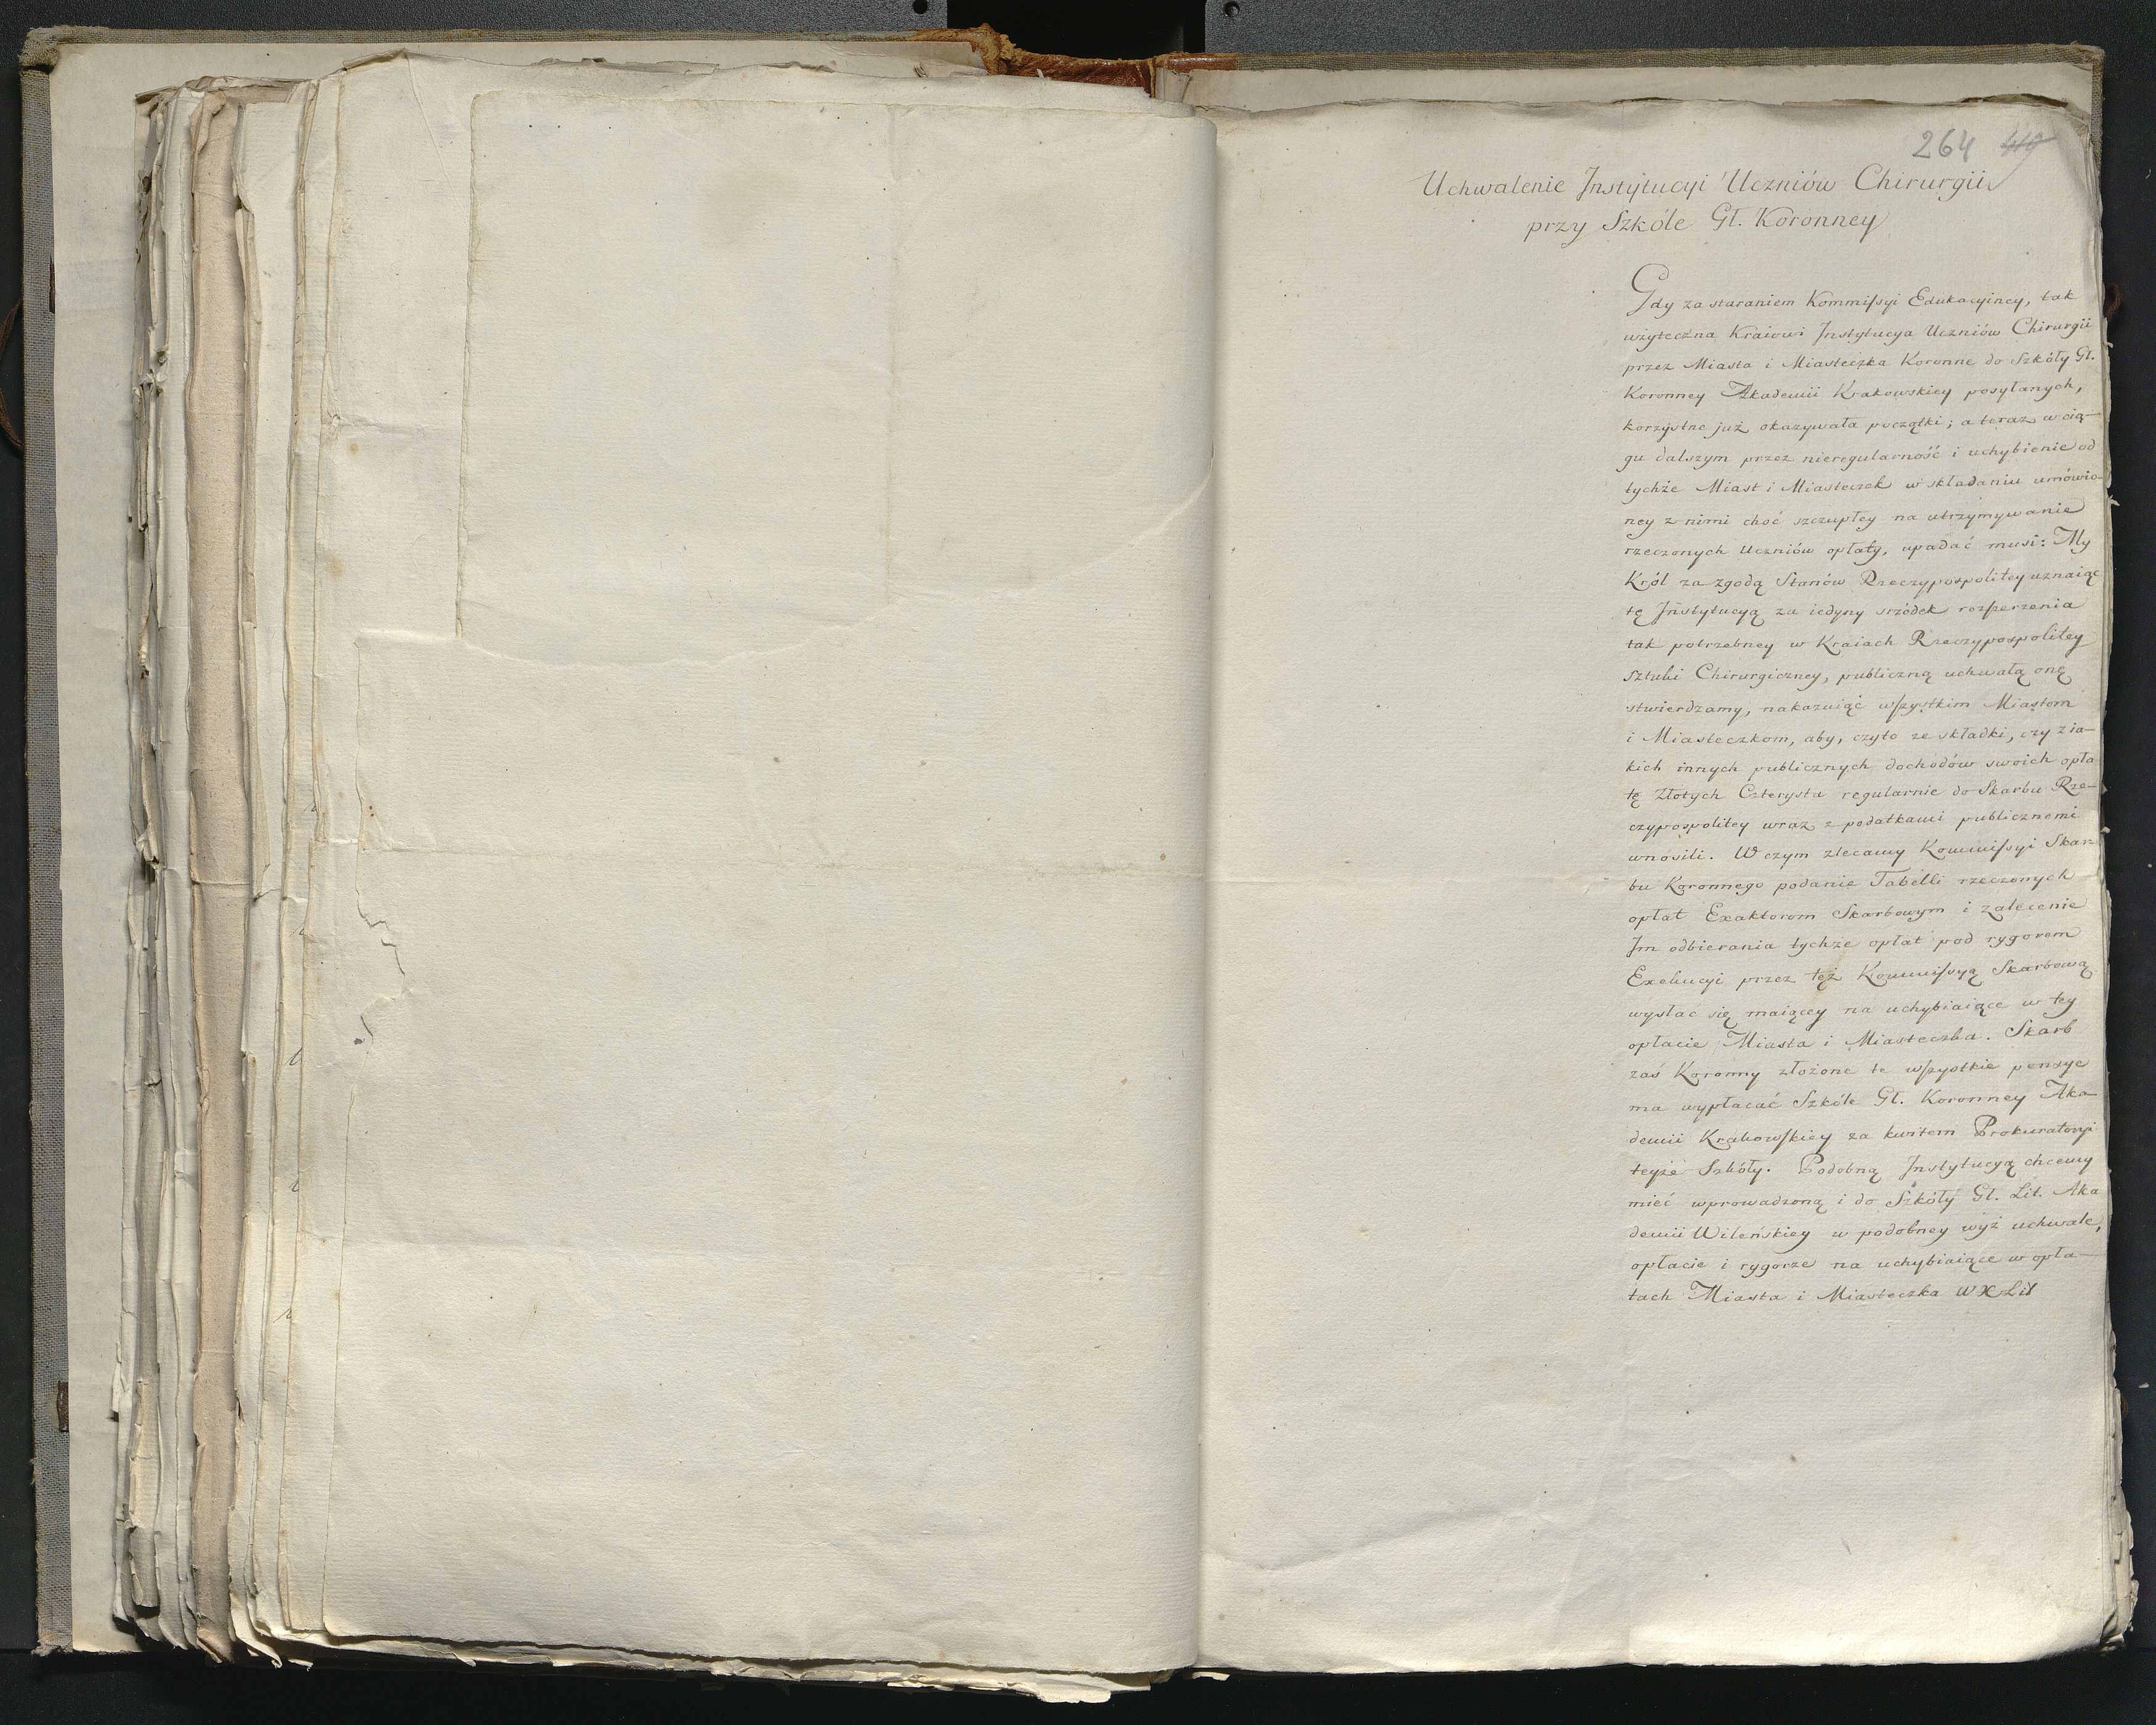 264
Uchwalenie Instytucyi Uczniów Chirurgii
przy Szkóle Gł. Koronney
Gdy za staraniem Kommissyi Edukacyiney, tak
użyteczna Kraiowi Instytucya Uczniów Chirurgii
przez Miasta i Miasteczka Koronne do Szkóły Gł.
Koronney Akademii Krakowskiey posyłanych,
korzystne już okazywała początki; a teraz w cią-
gu dalszym przez nieregularność i uchybienie od
tychże Miast i Miasteczek w składaniu umówio-
ney z nimi choć szczupłey na utrzymywanie
rzeczonych Uczniów opłaty, upadać musi: My
Król za zgodą Stanów Rzeczypospolitey uznaiąc
tę Instytucyą za iedyny srzódek rozszerzenia
tak potrzebney w Kraiach Rzeczypospolitey
sztuki Chirurgiczney, publiczną uchwałą onę
stwierdzamy, nakazuiąc wszystkim Miastom
i Miasteczkom, aby, czyto ze składki, czy z ia-
kich innych publicznych dochodów swoich opła
tę Złotych Czterysta regularnie do Skarbu Rze-
czypospolitey wraz z podatkami publicznemi
wnosili. W czym zlecamy Kommissyi Skar-
bu Koronnego podanie Tabelli rzeczonych
opłat Exaktorom Skarbowym i zalecenie
Im odbierania tychże opłat pod rygorem
Exekucyi przez też Kommissyą Skarbową
wysłac się maiącey na uchybiaiące w tey
opłacie Miasta i Miasteczka. Skarb
zaś Koronny złożone te wszystkie pensye
ma wypłacać Szkóle Gł. Koronney Aka-
demii Krakowskiey za kwitem Prokuratoryi
teyże Szkóły. Podobną Instytucyą chcemy
mieć wprowadzoną i do Szkóły Gł. Lit. Aka
demii Wileńskiey w podobney wyż uchwale,
opłacie i rygorze na uchybiaiące w opła-
tach Miasta i Miasteczka W X Lit